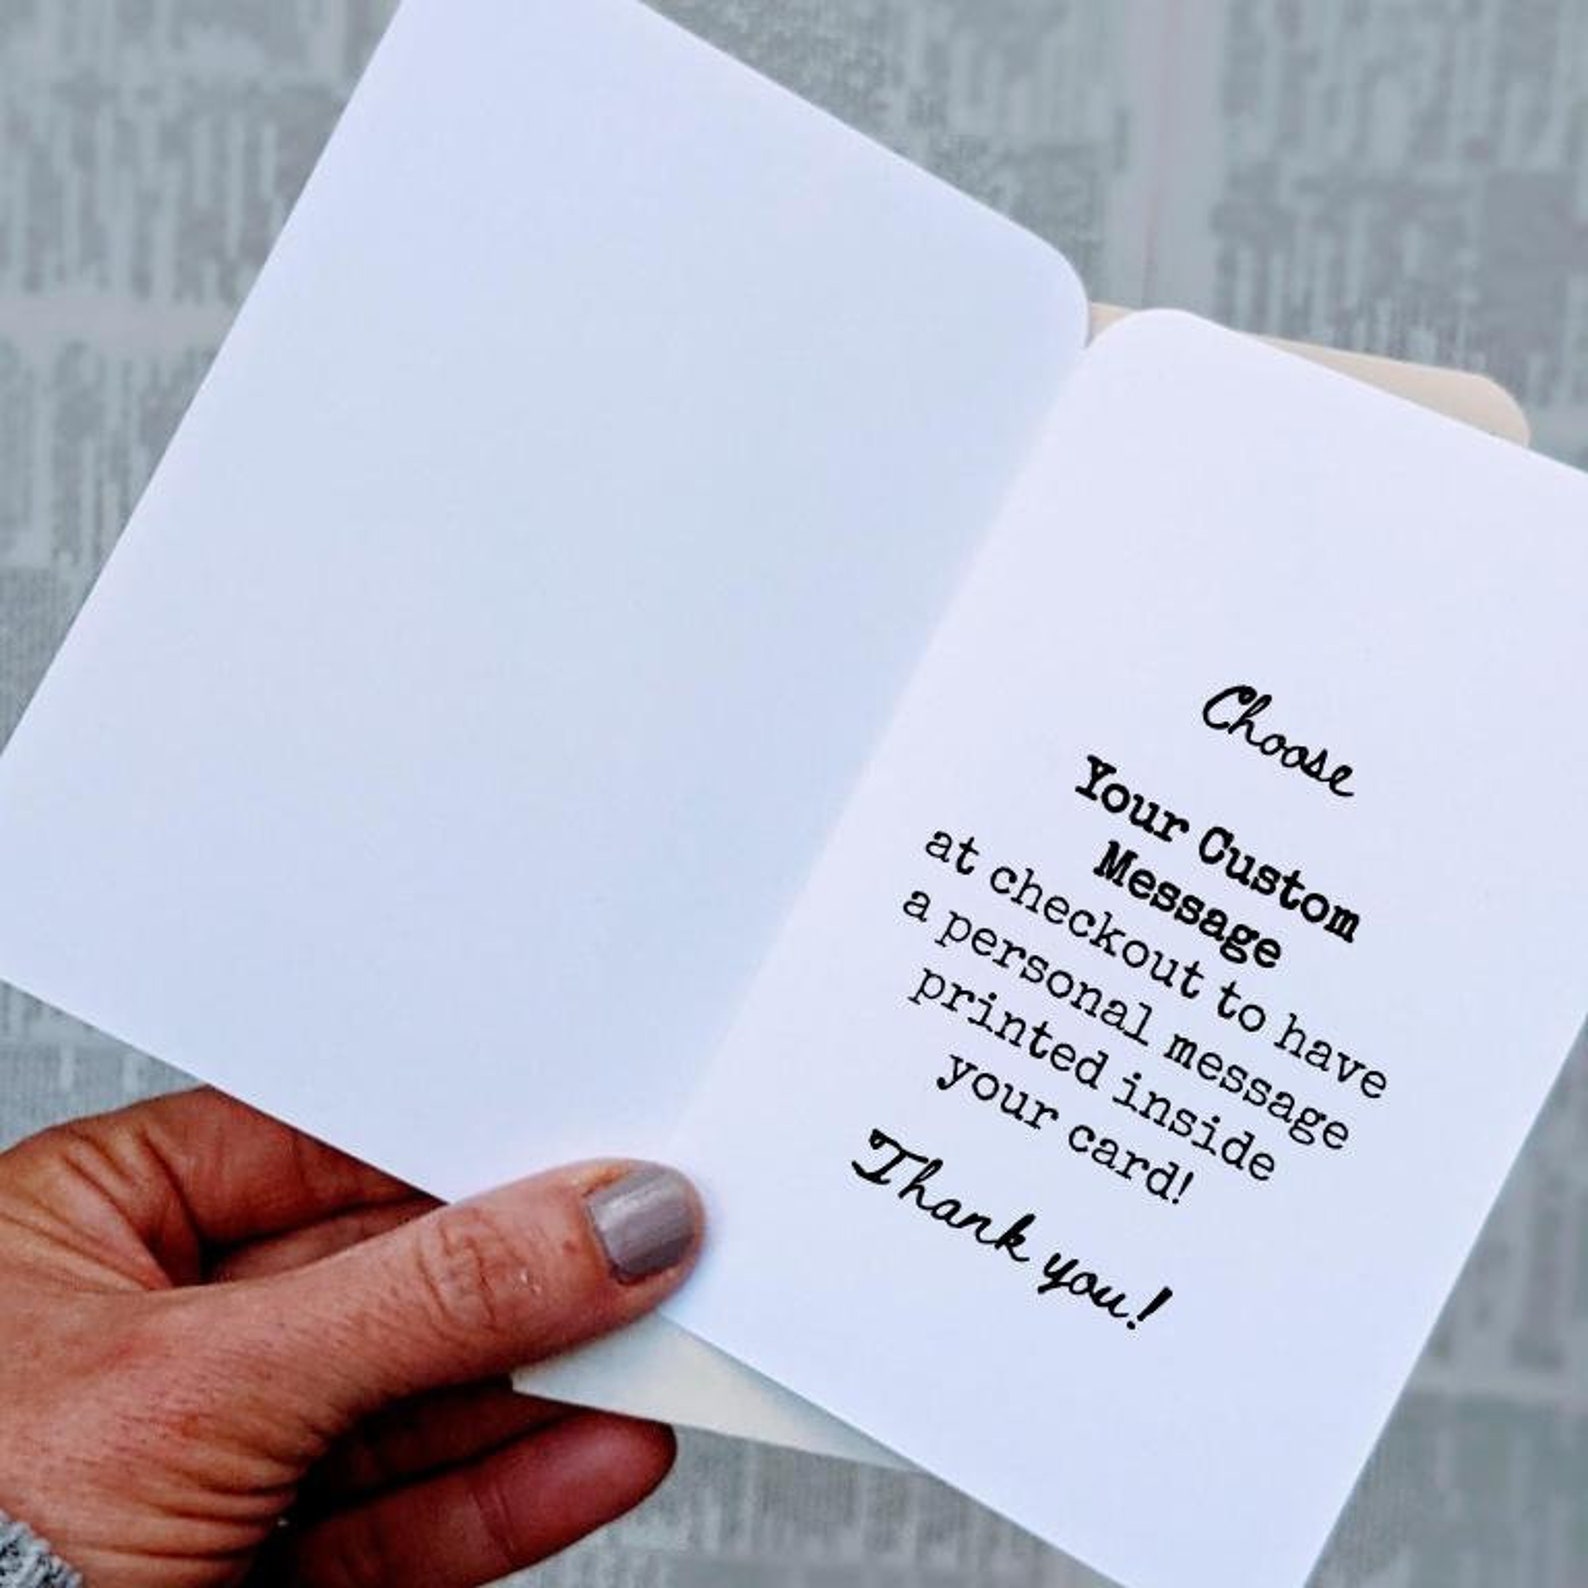 Choose
Your Custom
Message
at checkout to have
a personal message
printed inside
your card!
Thank you!